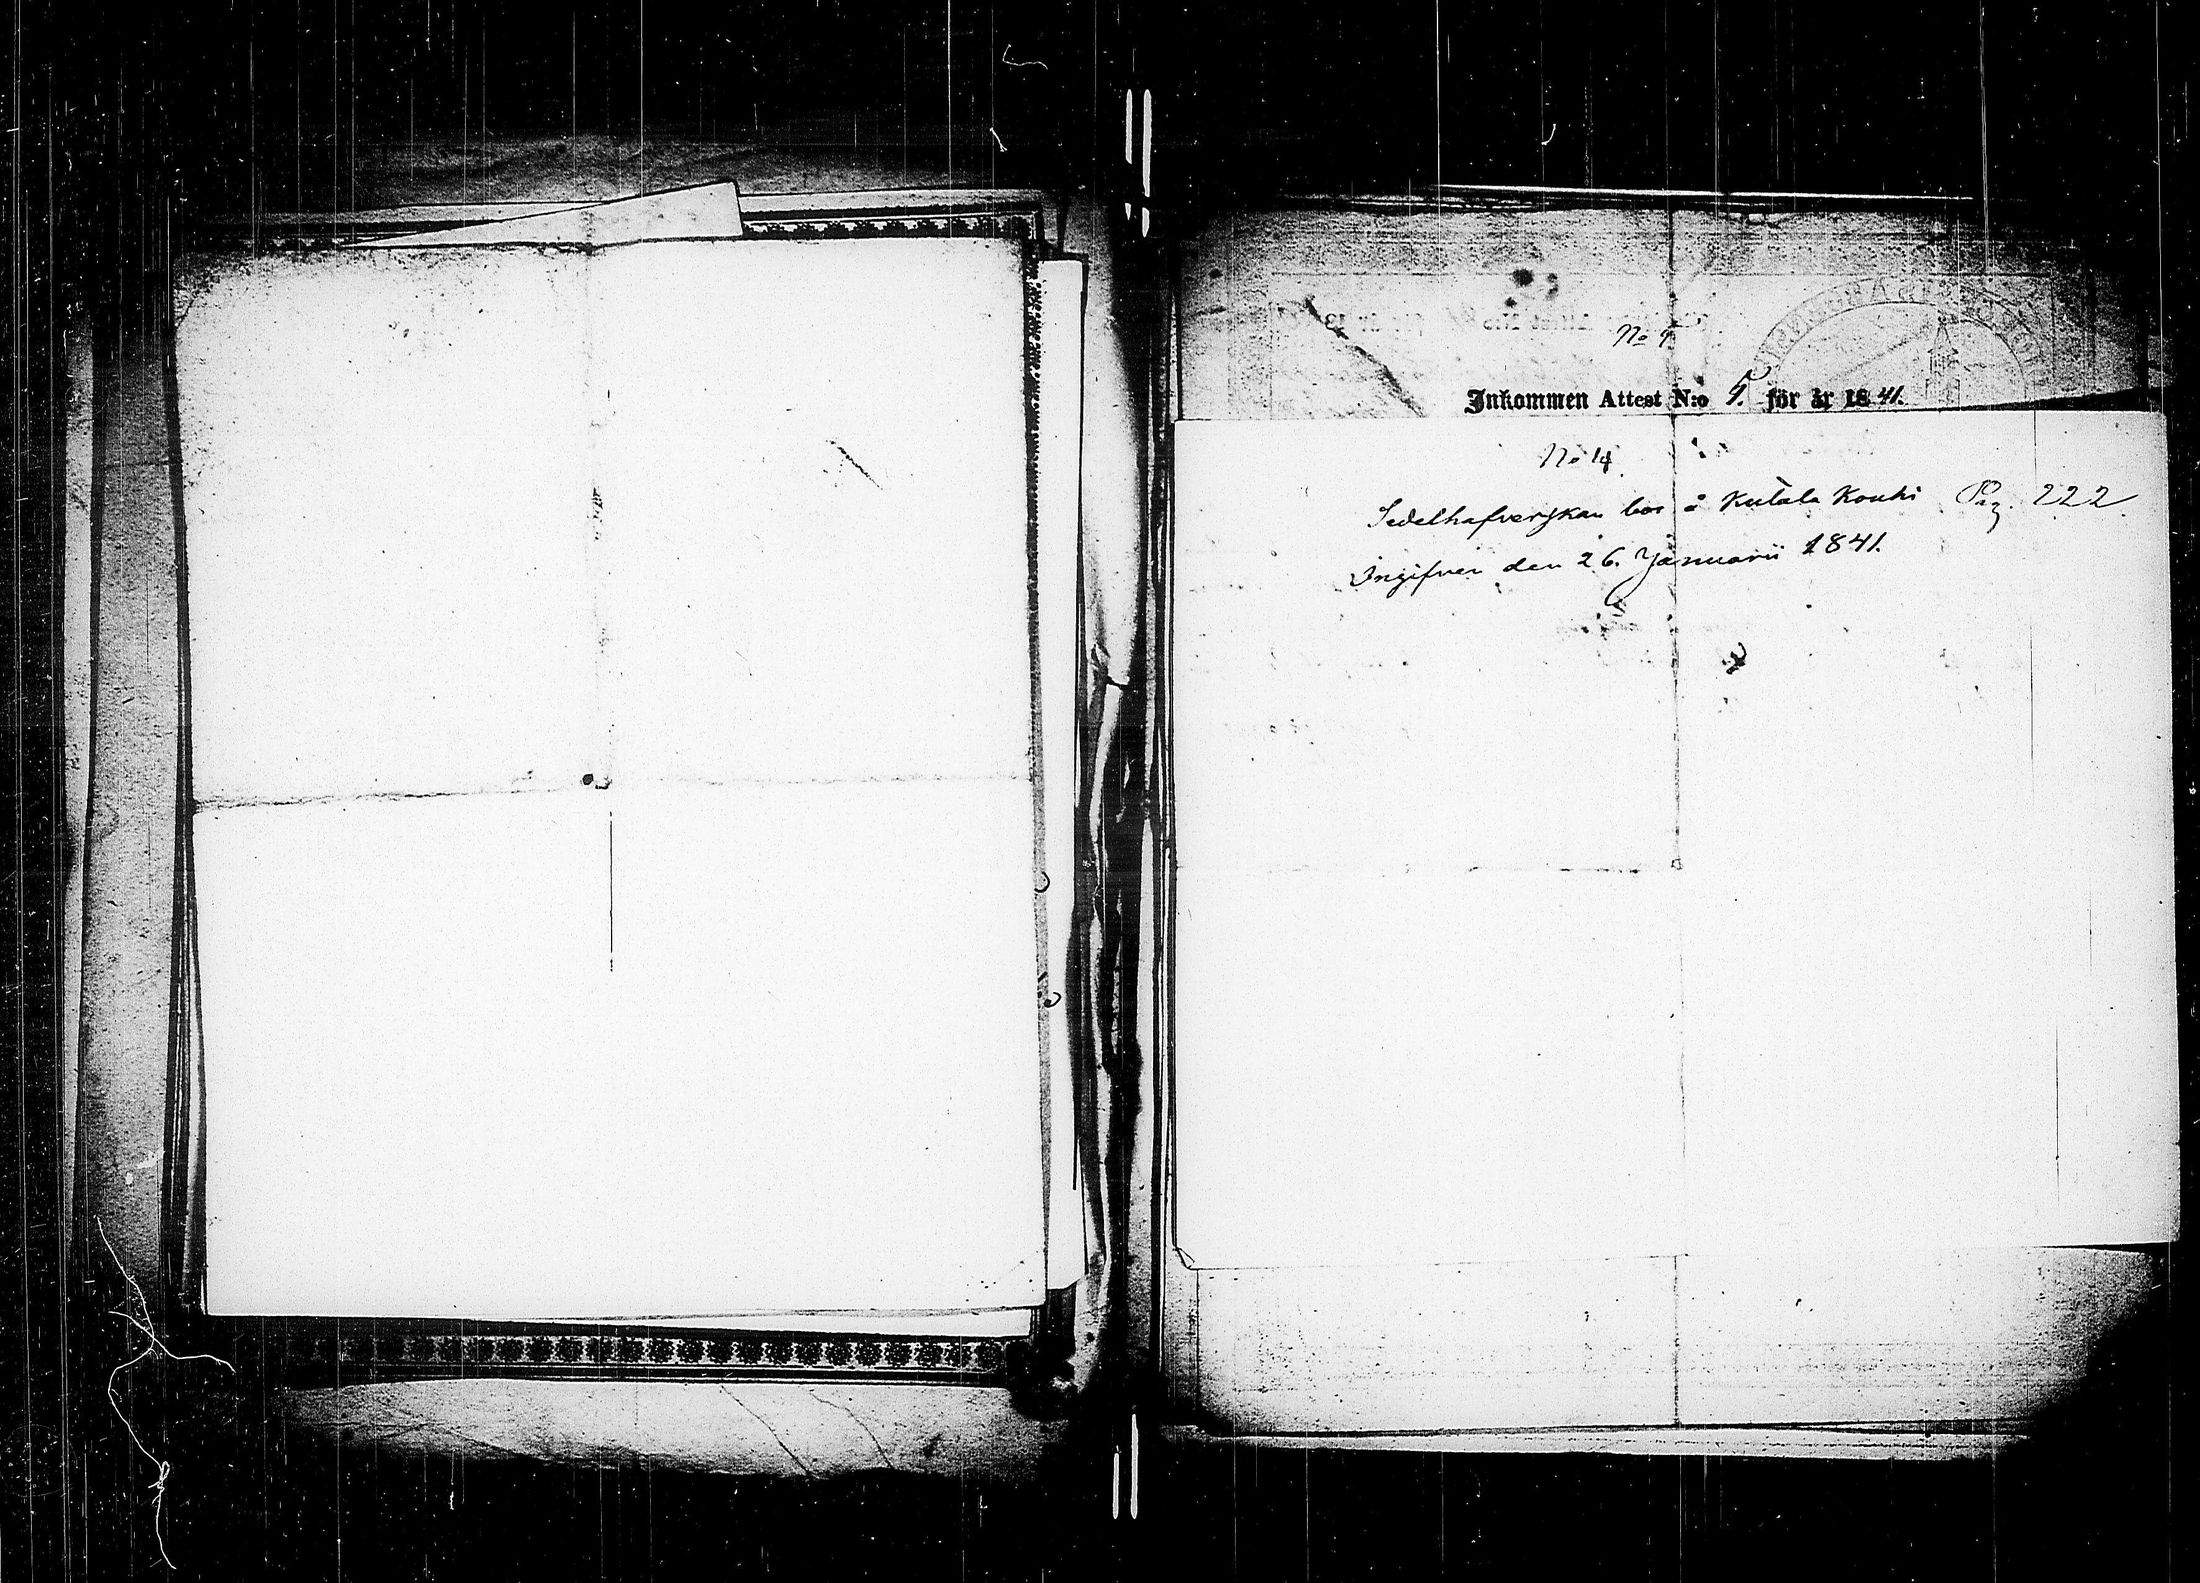 No 4
Inkommen Attest N:o 4. för år 1841.
No 4
Sedelhafverskan bor å Kutala Kouhi Pag. 222
Ingifven den 26. Januarii 1841.